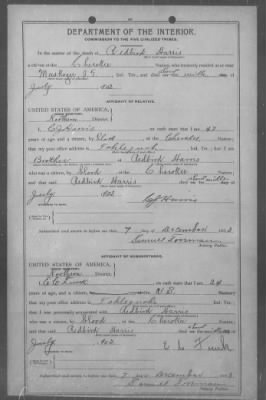 DEPARTMENT OF THE INTERIOR.
COMMISSION TO THE FIVE CIVILIZED TRIBES.
In the matter of the death of Redbird Harris
a citizen of the Cherokee Nation, who formerly resided at or near
Muskogee, I.T., Ind. Ter., and died on the day of
July, 1902
AFFIDAVIT OF RELATIVE.
UNITED STATES OF AMERICA,
Northern District.
I, C J Harris, on oath state that I am 47
years of age and a citizen, by blood, of the Cherokee Nation;
that my post office address is Tahlequah, Ind. Ter.; that I am
Brother of Redbird Harris
who was a citizen, by blood, of the Cherokee Nation;
and that said Redbird Harris died on the day of
July, 1902
C J Harris
Subscribed and sworn to before me this 7 day of December, 190
Samuel Foreman
Notary Public.
AFFIDAVIT OF ACQUAINTANCE.
UNITED STATES OF AMERICA,
Northern District.
I, on oath state that I am
years of age, and a citizen of U.S.
that my post office address is Tahlequah, Ind. Ter.;
that I was personally acquainted with Redbird Harris
who was a citizen, by blood, of the Cherokee Nation;
and that said Redbird Harris died on the day of
July, 1902
Subscribed and sworn to before me this 7 day of December, 190
Samuel Foreman
Notary Public.